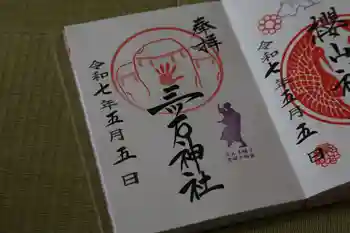 奉拝
三石神社
令和七年五月五日
櫻山神社
令和七年五月五日